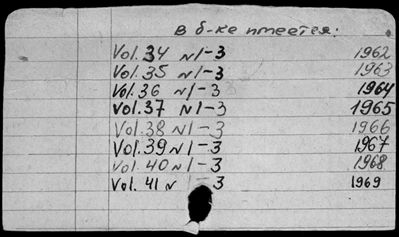 в б-ке имеется:
Vol. 34 N1-3 1962
Vol. 35 N1-3 1963
Vol. 36 N1-3 1964
Vol. 37 N1-3 1965
Vol. 38 N1-3 1966
Vol. 39 N1-3 1967
Vol. 40 N1-3 1968
Vol. 41 N 1-3 1969